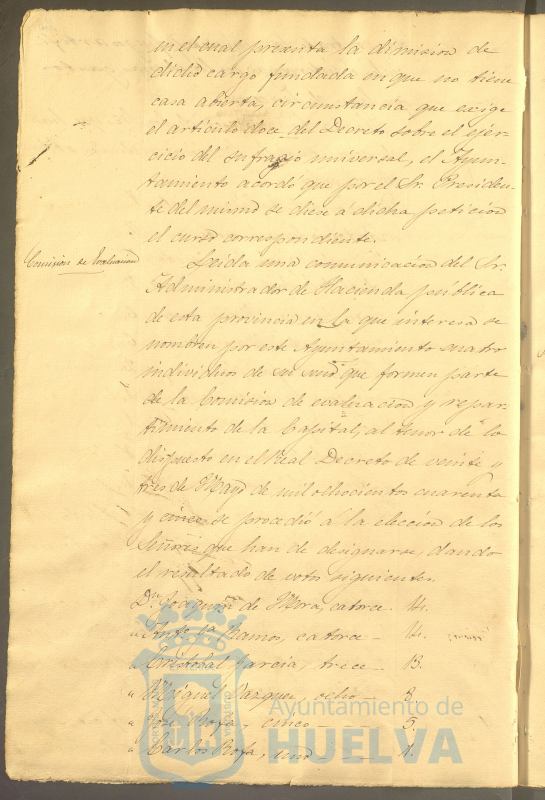 en el cual presenta la dimision de
dicho cargo fundada en que no tiene
casa abierta, circunstancia que exige
el artículo doce del Decreto sobre el ejer-
cicio del sufragio universal, el Ayun-
tamiento acordó que por el Sr. Presiden-
te del mismo se diese á dicha peticion
el curso correspondiente.
Comision de Evaluacion
Leida una comunicacion del Sr.
Administrador de Hacienda pública
de esta provincia en la que interesa se
nombren por este Ayuntamiento cuatro
individuos de su seno que formen parte
de la Comision de evaluacion y repar-
timiento de la Capital, al tenor de lo
dispuesto en el Real Decreto de veinte y
tres de Mayo de mil ochocientos cuarenta
y cinco se procedió á la eleccion de los
Señores que han de designarse, dando
el resultado de votos siguientes.
Dn. Joaquin de Mora, catorce 14.
" Anto. Ramos, catorce - 14.
" Cristobal Garcia, trece - 13.
" Miguel Vazquez, ocho - 8.
" José Rofa, cinco - - 5.
" Carlos Rofa, uno - - 1.
Ayuntamiento de
HUELVA